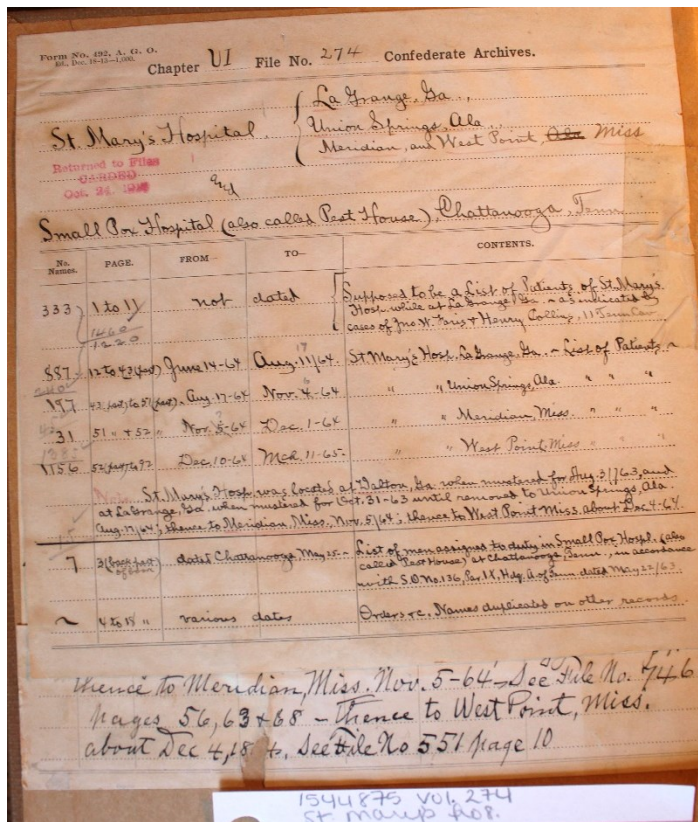 Form No. 492, A. G. O.
Ed. Dec. 18-12—1,000.
Chapter VI File No. 274 Confederate Archives.
St. Mary's Hospital. { La Grange, Ga.,
Union Springs, Ala.,
Meridian, and West Point, Ala Miss
Returned to Files
CARDED
Oct. 24, 19
and
Small Pox Hospital (also called Pest House), Chattanooga, Tenn
No. Names. PAGE. FROM— TO— CONTENTS.
333 1 to 11 not dated Supposed to be a List of Patients of St. Mary's
Hosp. while at La Grange, Ga. - as indicated by
cases of Jno. W. Faris & Henry Collins, 11 Tenn Cav.
1460
1220
887 12 to 43 (part) June 14-64 Aug. 11/64 St. Mary's Hosp. La Grange, Ga. - List of Patients ~
17
197 43 (part) to 51 (part) Aug. 17-64 Nov. 4-64 " " Union Springs, Ala. " " "
31 51 " & 52 " Nov. 5-64 Dec. 1-64 " " Meridian, Miss. " " "
1382
1156 52 (part) to 92 Dec. 10-64 Mch. 11-65- " " West Point, Miss " " "
Note St. Mary's Hosp. was located at Dalton, Ga. when mustered for Aug. 31/63, and
at La Grange, Ga. when mustered for Oct. 31-63 until removed to Union Springs, Ala.
Aug. 17/64; thence to Meridian, Miss. Nov. 5/64; thence to West Point Miss. about Dec. 4-64.
7 3 (back part of book) dated Chattanooga May 25- List of men assigned to duty in Small Pox Hospl. (also
called Pest House) at Chattanooga, Tenn., in accordance
with S.O. No. 136, Par. IX, Hdq. A of Tenn dated May 22/63
~ 4 to 15 " various dates Orders &c. Names duplicated on other records.
thence to Meridian, Miss. Nov. 5-64 - See File No. 746
pages 56, 63 & 68 - thence to West Point, Miss.
about Dec 4, 18 See File No 551 page 10
1544875 Vol. 274
St Marys Hos.